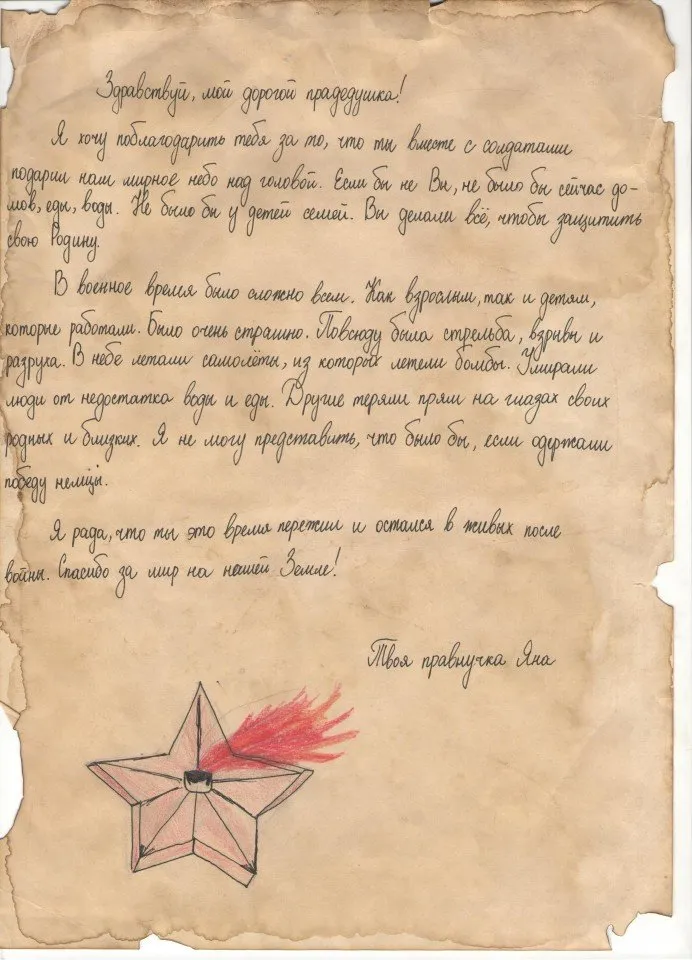 Здравствуй, мой дорогой прадедушка!
Я хочу поблагодарить тебя за то, что ты вместе с солдатами
подарил нам мирное небо над головой. Если бы не Вы, не было бы сейчас до-
мов, еды, воды. Не было бы у детей семей. Вы делали всё, чтобы защитить
свою Родину.
В военное время было сложно всем. Как взрослым, так и детям,
которые работали. Было очень страшно. Повсюду была стрельба, взрывы и
разруха. В небе летали самолёты, из которых летели бомбы. Умирали
люди от недостатка воды и еды. Другие теряли прям на глазах своих
родных и близких. Я не могу представить, что было бы, если одержали
победу немцы.
Я рада, что ты это время пережил и остался в живых после
войны. Спасибо за мир на нашей Земле!
Твоя правнучка Яна